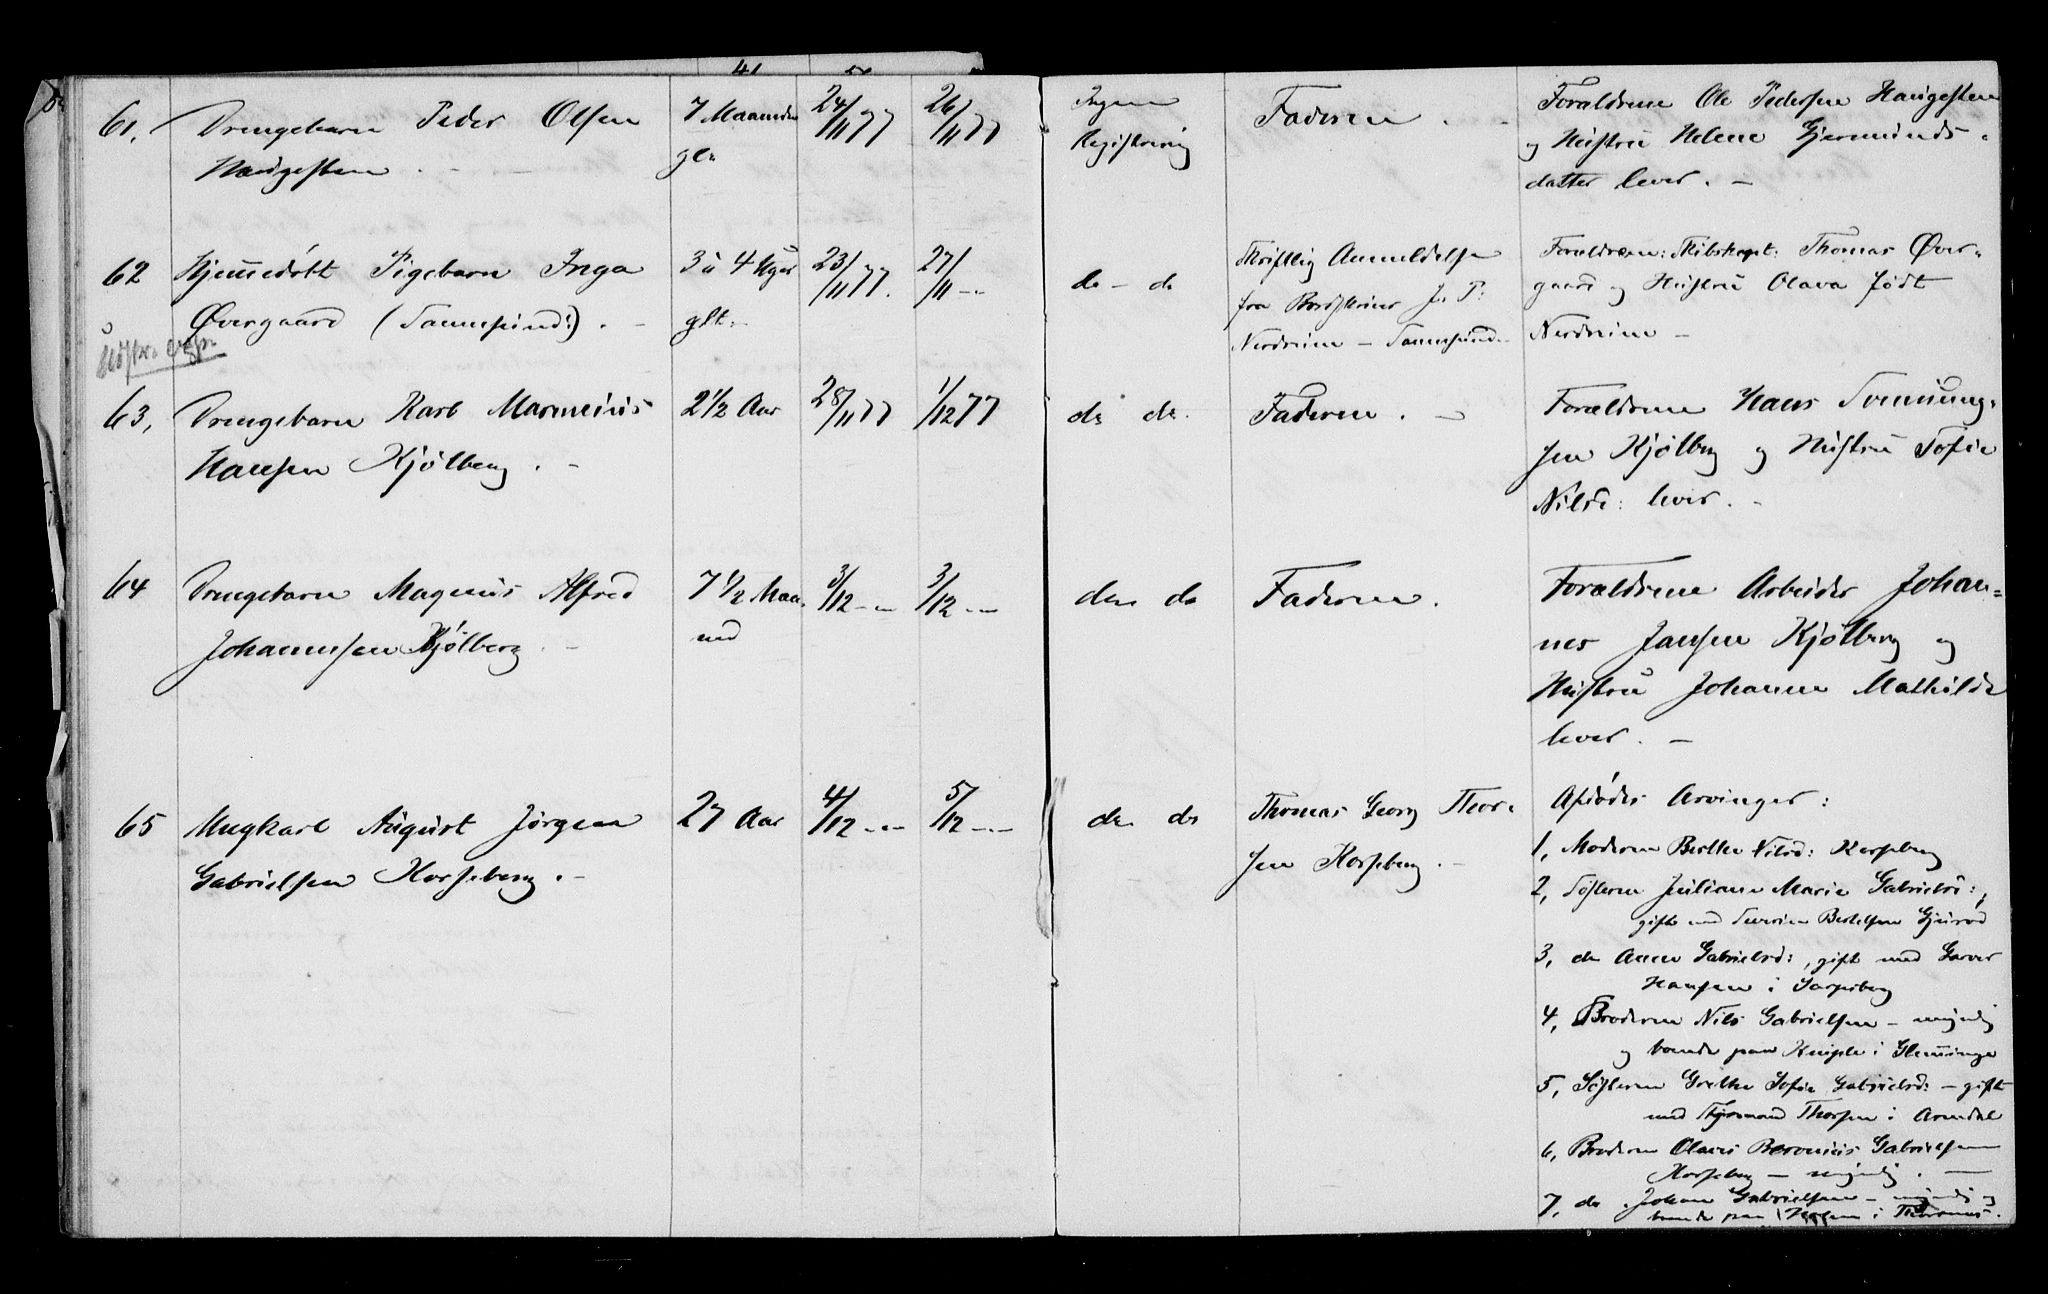 61, Drengebarn Peder Olsen
Haugesten
7 Maaneder
gl.
24/11 77
26/11 77
Ingen
Registrering
Faderen.
Forældrene Ole Pedersen Haugesten
og Hustru Helene Gjermunds-
datter lever. —
62 Hjemmedøbt Pigebarn Inga
Øvergaard (Tannesund:). —
3 à 4 Uger
glt.
23/11 77.
27/11 —
do - do
Skriftlig Anmeldelse
fra
Nordrum — Tannesund.
Forældrene: Skibskapt: Thomas Øver-
gaard og Hustru Olava født
Nordrum —
63, Drengebarn Karl Marinius
Hansen Kjølberg. —
2 1/2 Aar
28/11 77
1/12 77
do do.
Faderen. —
Forældrene Hans Svenning-
sen Kjølberg og Hustru Sofie
Nilsd: lever. —
64 Drengebarn Magnus Alfred
Johannesen Kjølberg. —
7 1/2 Maa-
ned
3/12 —
3/12 —
do do
Faderen.
Forældrene Arbeider Johan-
nes Jansen Kjølberg og
Hustru Johanne Mathilde
lever. —
65 Ungkarl August Jørgen
Gabrielsen Korseberg. —
27 Aar
4/12 —
5/12 —
do do
Thomas Georg Thor-
sen Korseberg. —
Afdødes Arvinger:
1, Moderen Berthe Nilsd: Korseberg
2, Søsteren Juliane Marie Gabrielsd:,
gift med Severin Bertelsen
3, do Anne Gabrielsd:, gift med Garver
Hansen i Sarpsborg
4, Broderen Nils Gabrielsen — myndig
og boende paa i Glemminge
5, Søsteren Grethe Sofie Gabrielsd: — gift
med Styrmand Thorsen i Arendal
6, Broderen Olaus Gabrielsen
Korseberg — myndig. —
7, do Johan Gabrielsen — myndig og
boende paa i